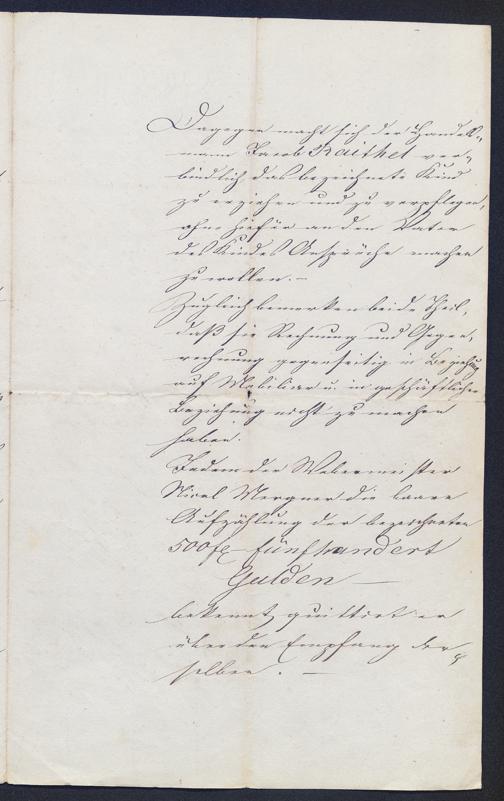 Dagegen macht sich der Handels-
mann Jacob Raithel ver-
bindlich das bezeichnete Kind
zu erziehen und zu verpflegen,
ohne hiefür an den Vater
des Kindes Ansprüche machen
zu wollen. —
Zugleich bemerken beide Theile,
daß sie Rechnung und Gegen-
rechnung gegenseitig in Beziehung
auf Mobiliar u. in geschäftlicher
Beziehung nicht zu machen
haben.
Indem der Webermeister
Nicol Mergner die baare
Aufzählung der bezeichneten
500 fl fünfhundert
Gulden —
bekennt, quittirt er
über den Empfang der-
selben. —